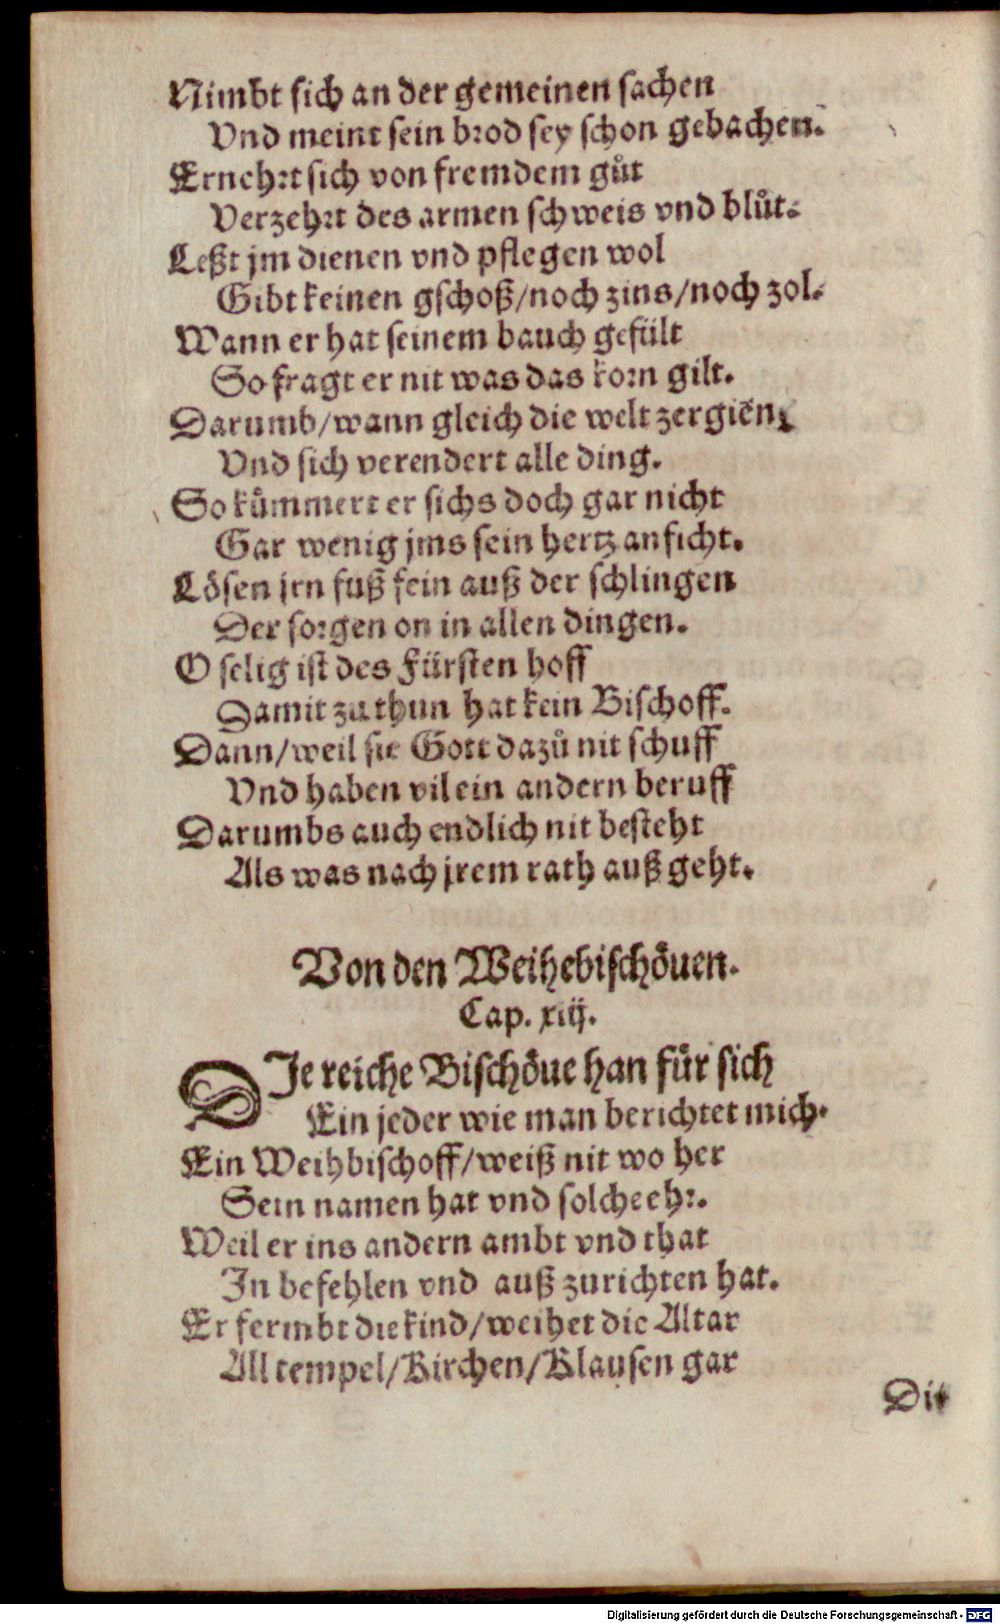 Nimbt sich an der gemeinen sachen
Vnd meint sein brod sey schon gebachen.
Ernehrt sich von fremdem gůt
Verzehrt des armen schweis vnd blůt.
Leßt jm dienen vnd pflegen wol
Gibt keinen gschoß/noch zins/noch zol.
Wann er hat seinem bauch gefült
So fragt er nit was das korn gilt.
Darumb/wann gleich die welt zergieng
Vnd sich verendert alle ding.
So kům̃ert er sichs doch gar nicht
Gar wenig jms sein hertz anficht.
Lösen jrn fuß fein auß der schlingen
Der sorgen on in allen dingen.
O selig ist des Fürsten hoff
Damit zu thun hat kein Bischoff.
Dann/weil sie Gott dazů nit schuff
Vnd haben vil ein andern beruff
Darumbs auch endlich nit besteht
Als was nach jrem rath auß geht.
Von den Weihebischöuen.
Cap. xiij.
DIe reiche Bischöue han für sich
Ein jeder wie man berichtet mich.
Ein Weihbischoff/weiß nit wo her
Sein namen hat vnd solche ehr.
Weil er ins andern ambt vnd that
In befehlen vnd auß zurichten hat.
Er fermbt die kind/weihet die Altar
All tempel/Kirchen/Klausen gar
Die
Digitalisierung gefördert durch die Deutsche Forschungsgemeinschaft - DFG